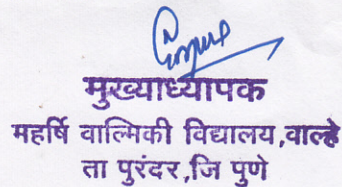 मुख्याध्यापक
महर्षि वाल्मिकी विद्यालय,वाल्हे
ता पुरंदर,जि पुणे